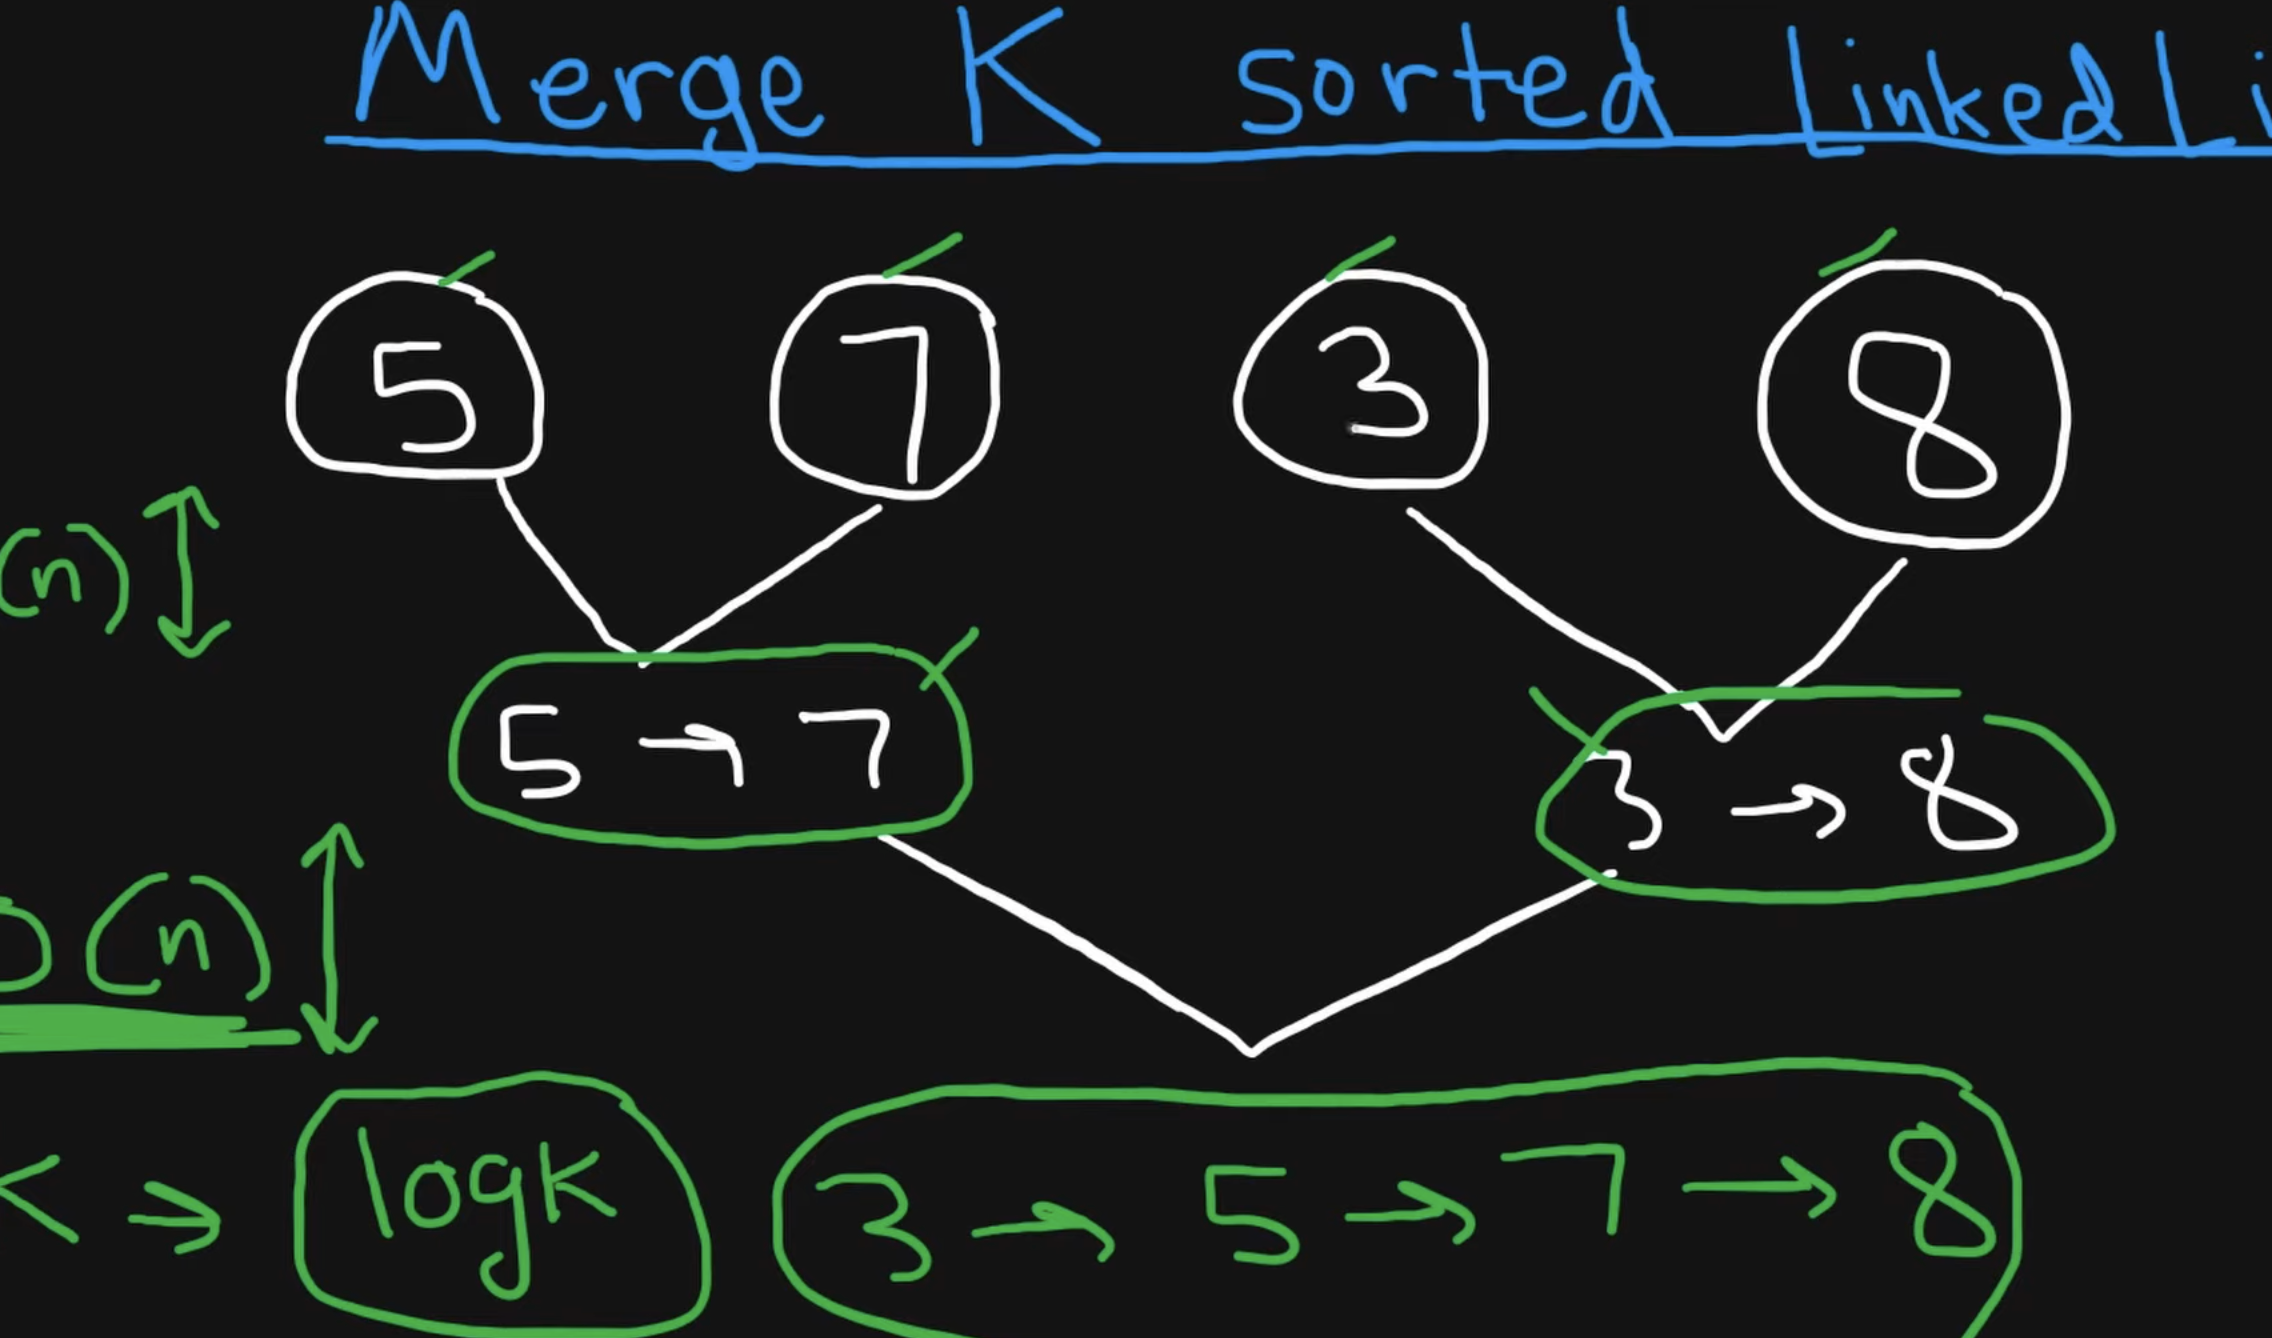 Merge K sorted Linked Li
5 7 3 8
(n)
5 → 7 3 → 8
O(n)
K ⇒ logk 3 → 5 → 7 → 8